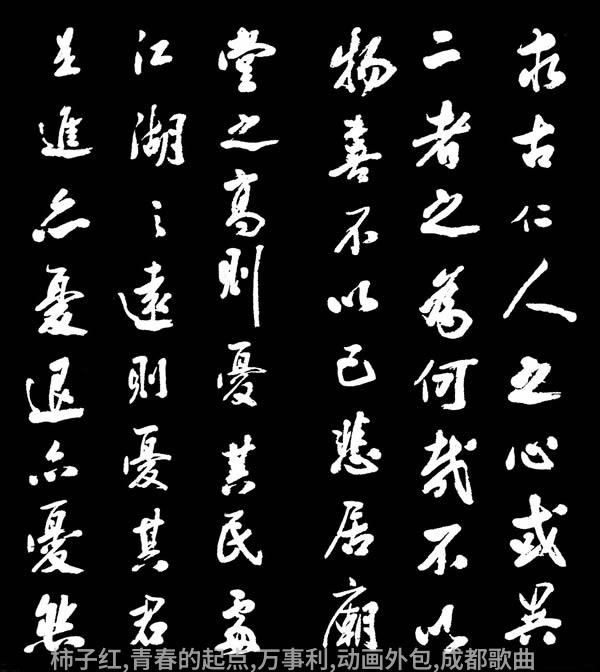 求古仁人之心或異
二者之為何哉不以
物喜不以己悲居廟
堂之高則憂其民處
江湖之遠則憂其君
是進亦憂退亦憂然
柿子红,青春的起点,万事利,动画外包,成都歌曲